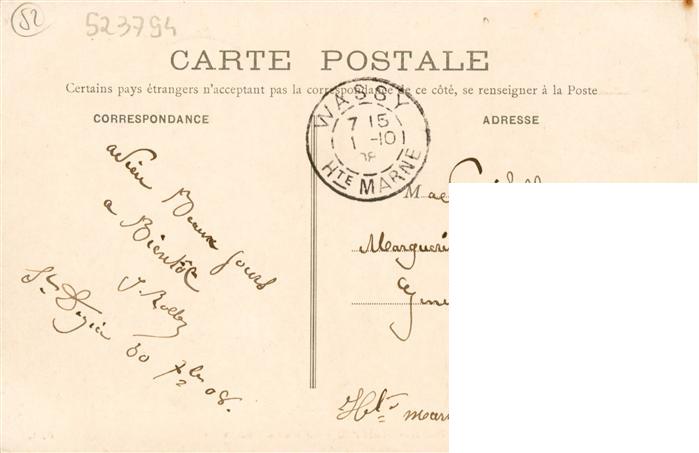 52
523794
CARTE POSTALE
Certains pays étrangers n'acceptent pas la correspondance de ce côté, se renseigner à la Poste
CORRESPONDANCE
ADRESSE
WASSY
7 15
1 -10
08
HTE MARNE
M
adieu Beaux jours
a Bientôt
St Dizier 30 7bre 08.
Margueri
Hte marn